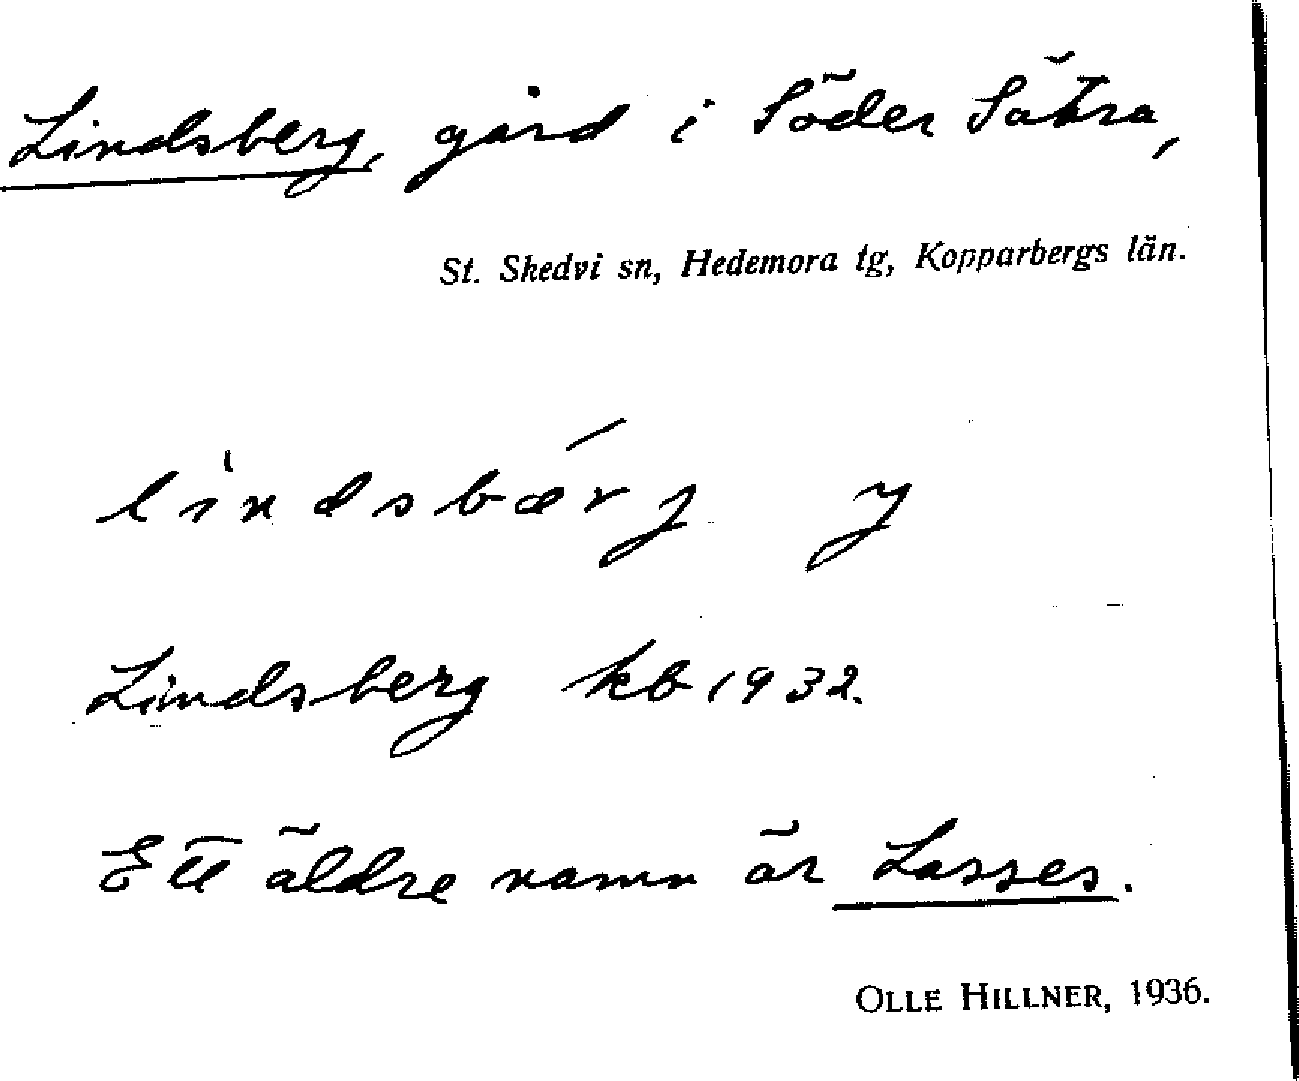 Lindsberg, gård i Söder Sätra,
St. Skedvi sn, Hedemora tg, Kopparbergs län.
lìndsbærj y
Lindsberg kb 1932.
Ett äldre namn är Lasses.
OLLE HILLNER, 1936.